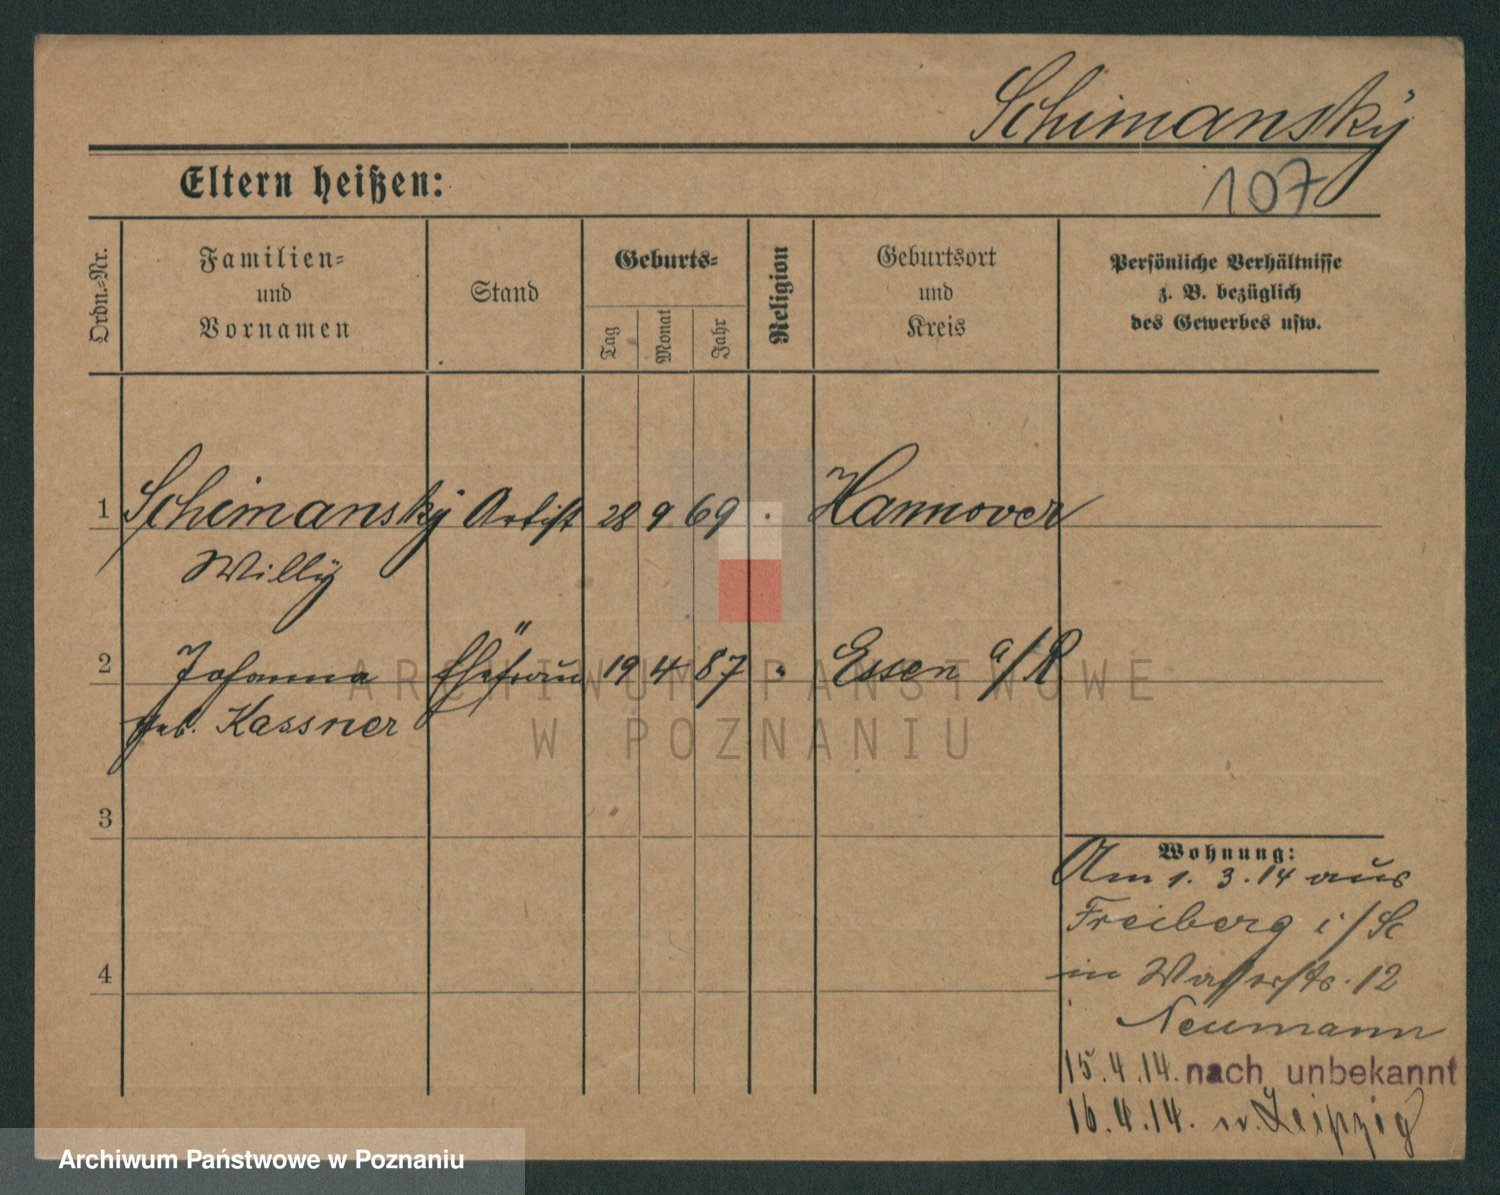 Schimansky
107
Eltern heißen:
Ordn.-Nr.
Familien-
und
Vornamen
Stand
Geburts-
Tag
Monat
Jahr
Religion
Geburtsort
und
Kreis
Persönliche Verhältnisse
z. B. bezüglich
des Gewerbes usw.
1 Schimansky Artist 28 9 69 . Hannover
Willy
2 Johanna Ehefrau 19 4 87 " Essen a/R
geb. Kassner
3
4
Wohnung:
Am 1. 3. 14 aus
Freiberg i/Sc
in Wasserstr. 12
Neumann
15.4.14. nach unbekannt
16.4.14. n. Leipzig
ARCHIWUM PAŃSTWOWE
W POZNANIU
Archiwum Państwowe w Poznaniu